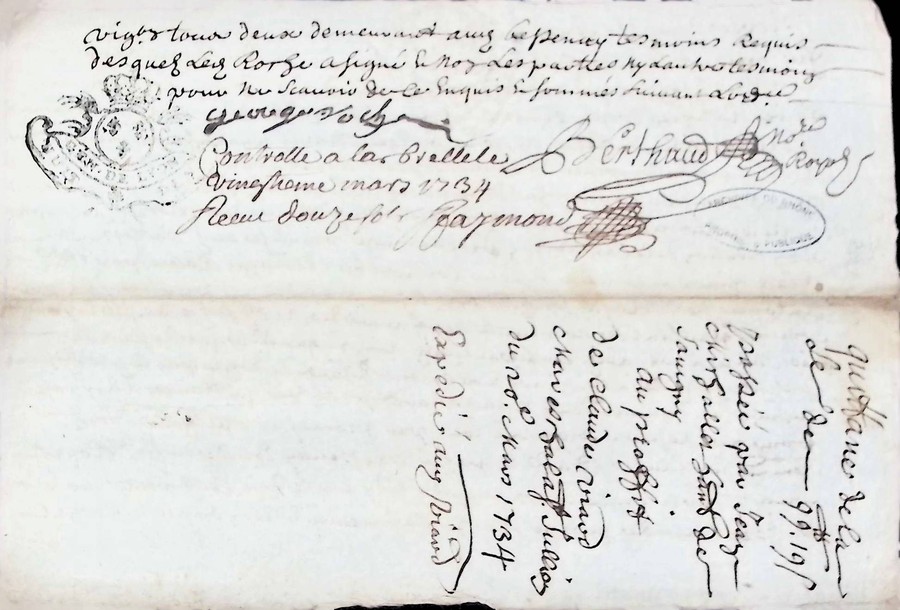 vigr tous deux demeurant aud Bessenay tesmoins Requis
desquels led Roche a signé & non les parties ny l'autre tesmoin
pour ne scavoir de ce Enquis & sommés suivant L'ord.ce
george roche
Berthaud no.re Royal
Controlle a larbrelle le
vingtieme mars 1734
Receu douze sols Raymond
quittance de la
So de 99.tt 19 s
passée par Jean
de
Savigny
au proffit
de Claude viard
St Jullien
du 20.e Mars 1734
Expedié aud viard